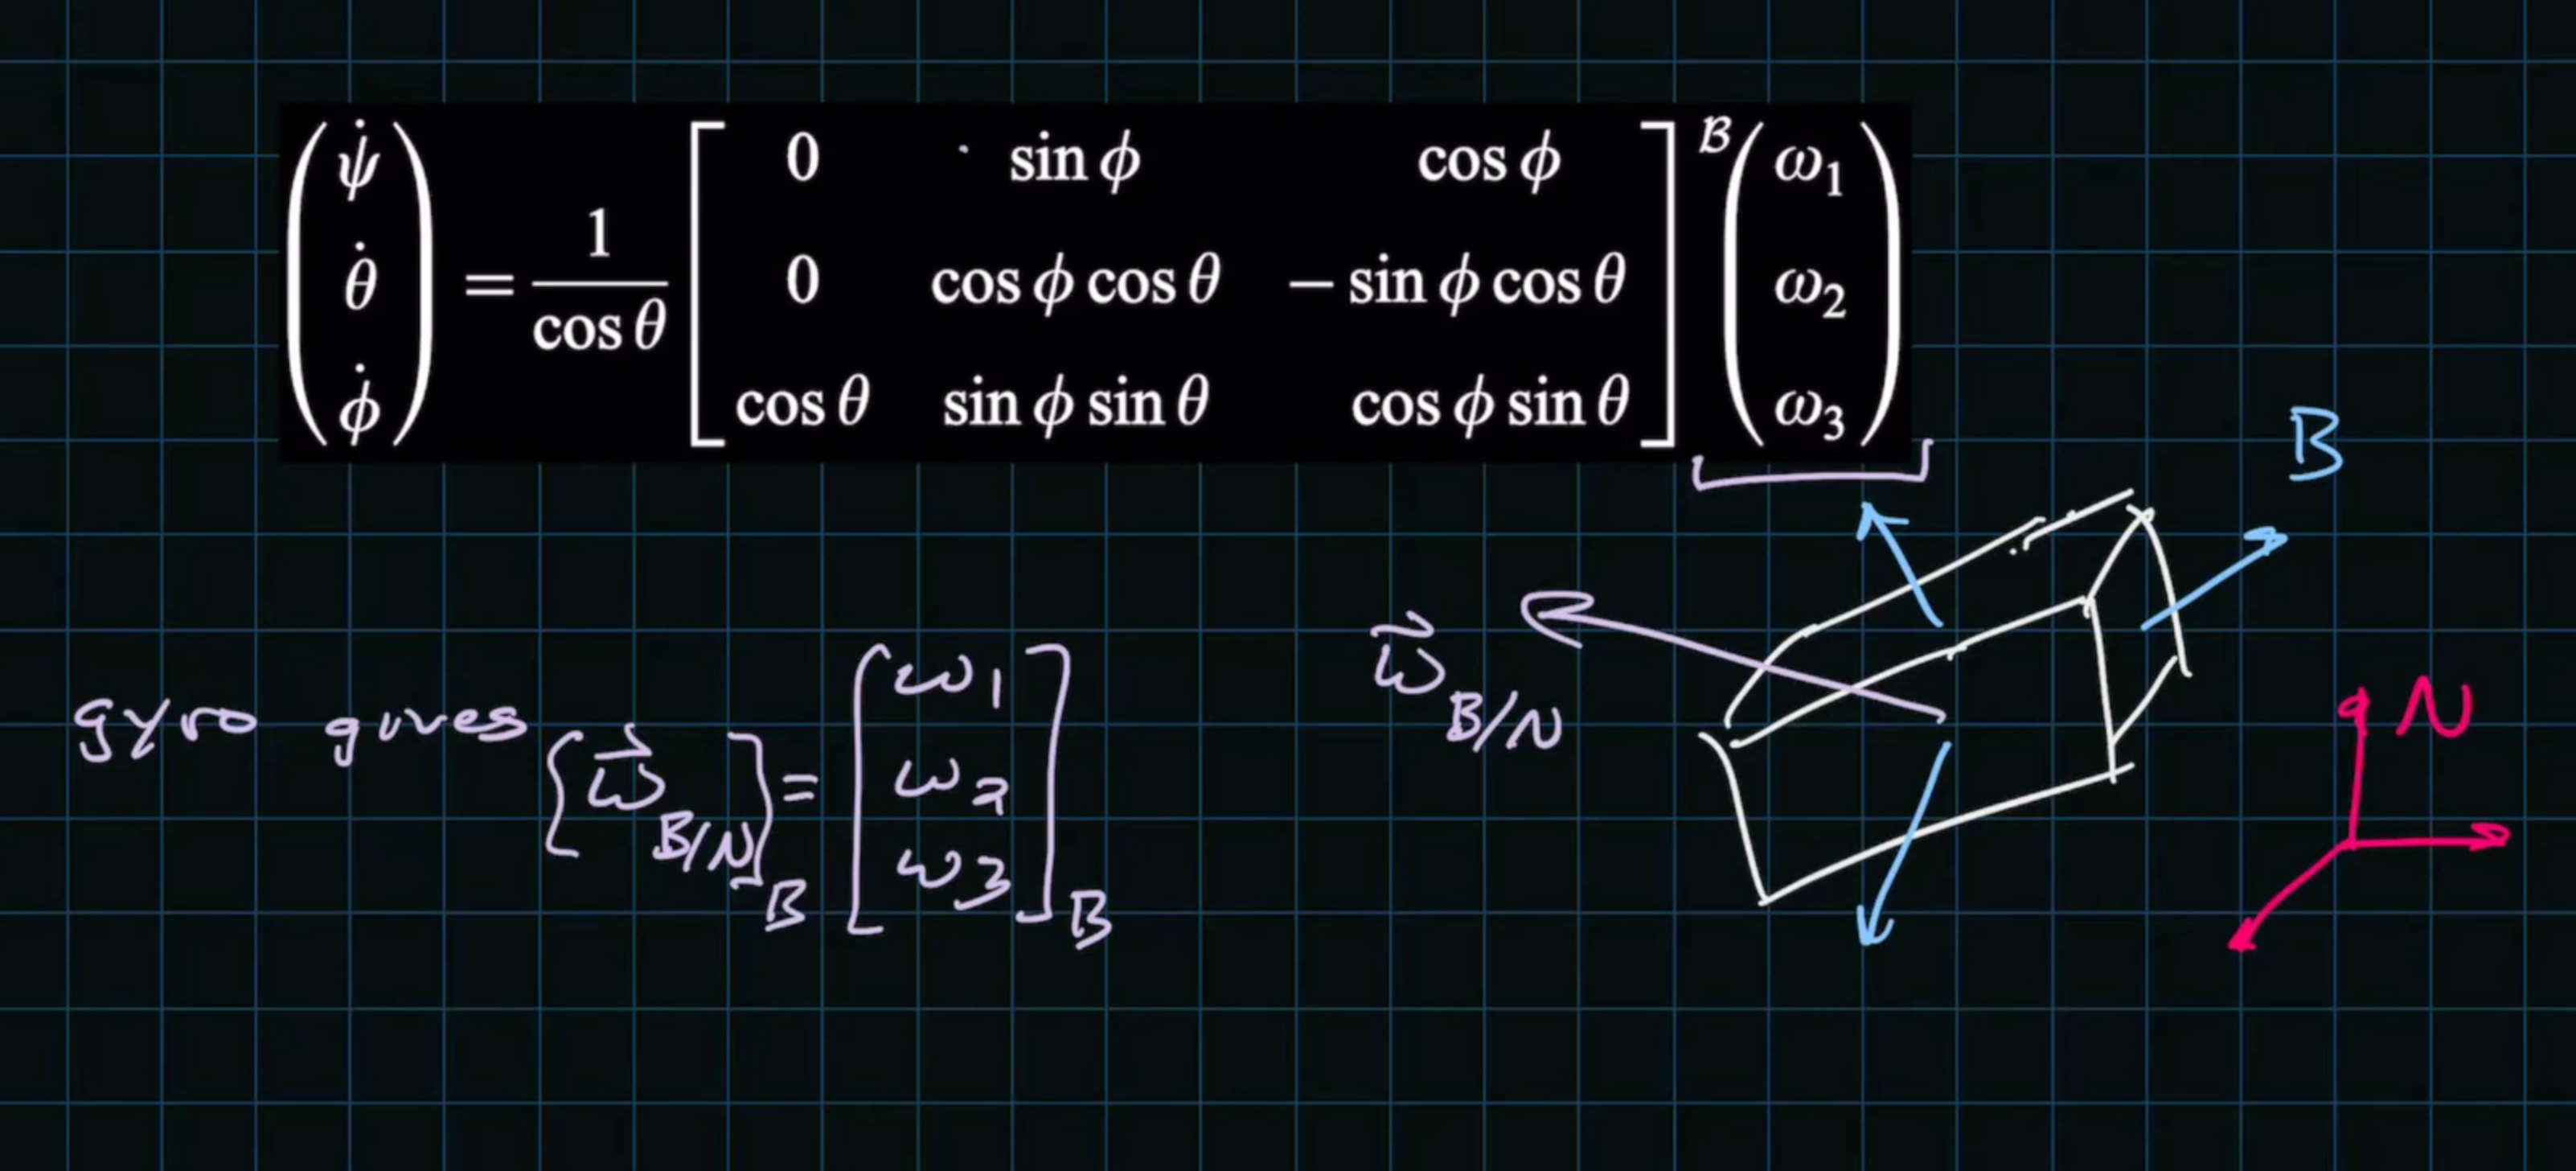 (ψ̇ θ̇ φ̇) = 1/cos θ [0 sin ϕ cos ϕ
0 cos ϕ cos θ − sin ϕ cos θ
cos θ sin ϕ sin θ cos ϕ sin θ] ᴮ(ω₁ ω₂ ω₃)
B
ω⃗ B/N
N
gyro gives [ω⃗ B/N]B = [ω1 ω2 ω3]B